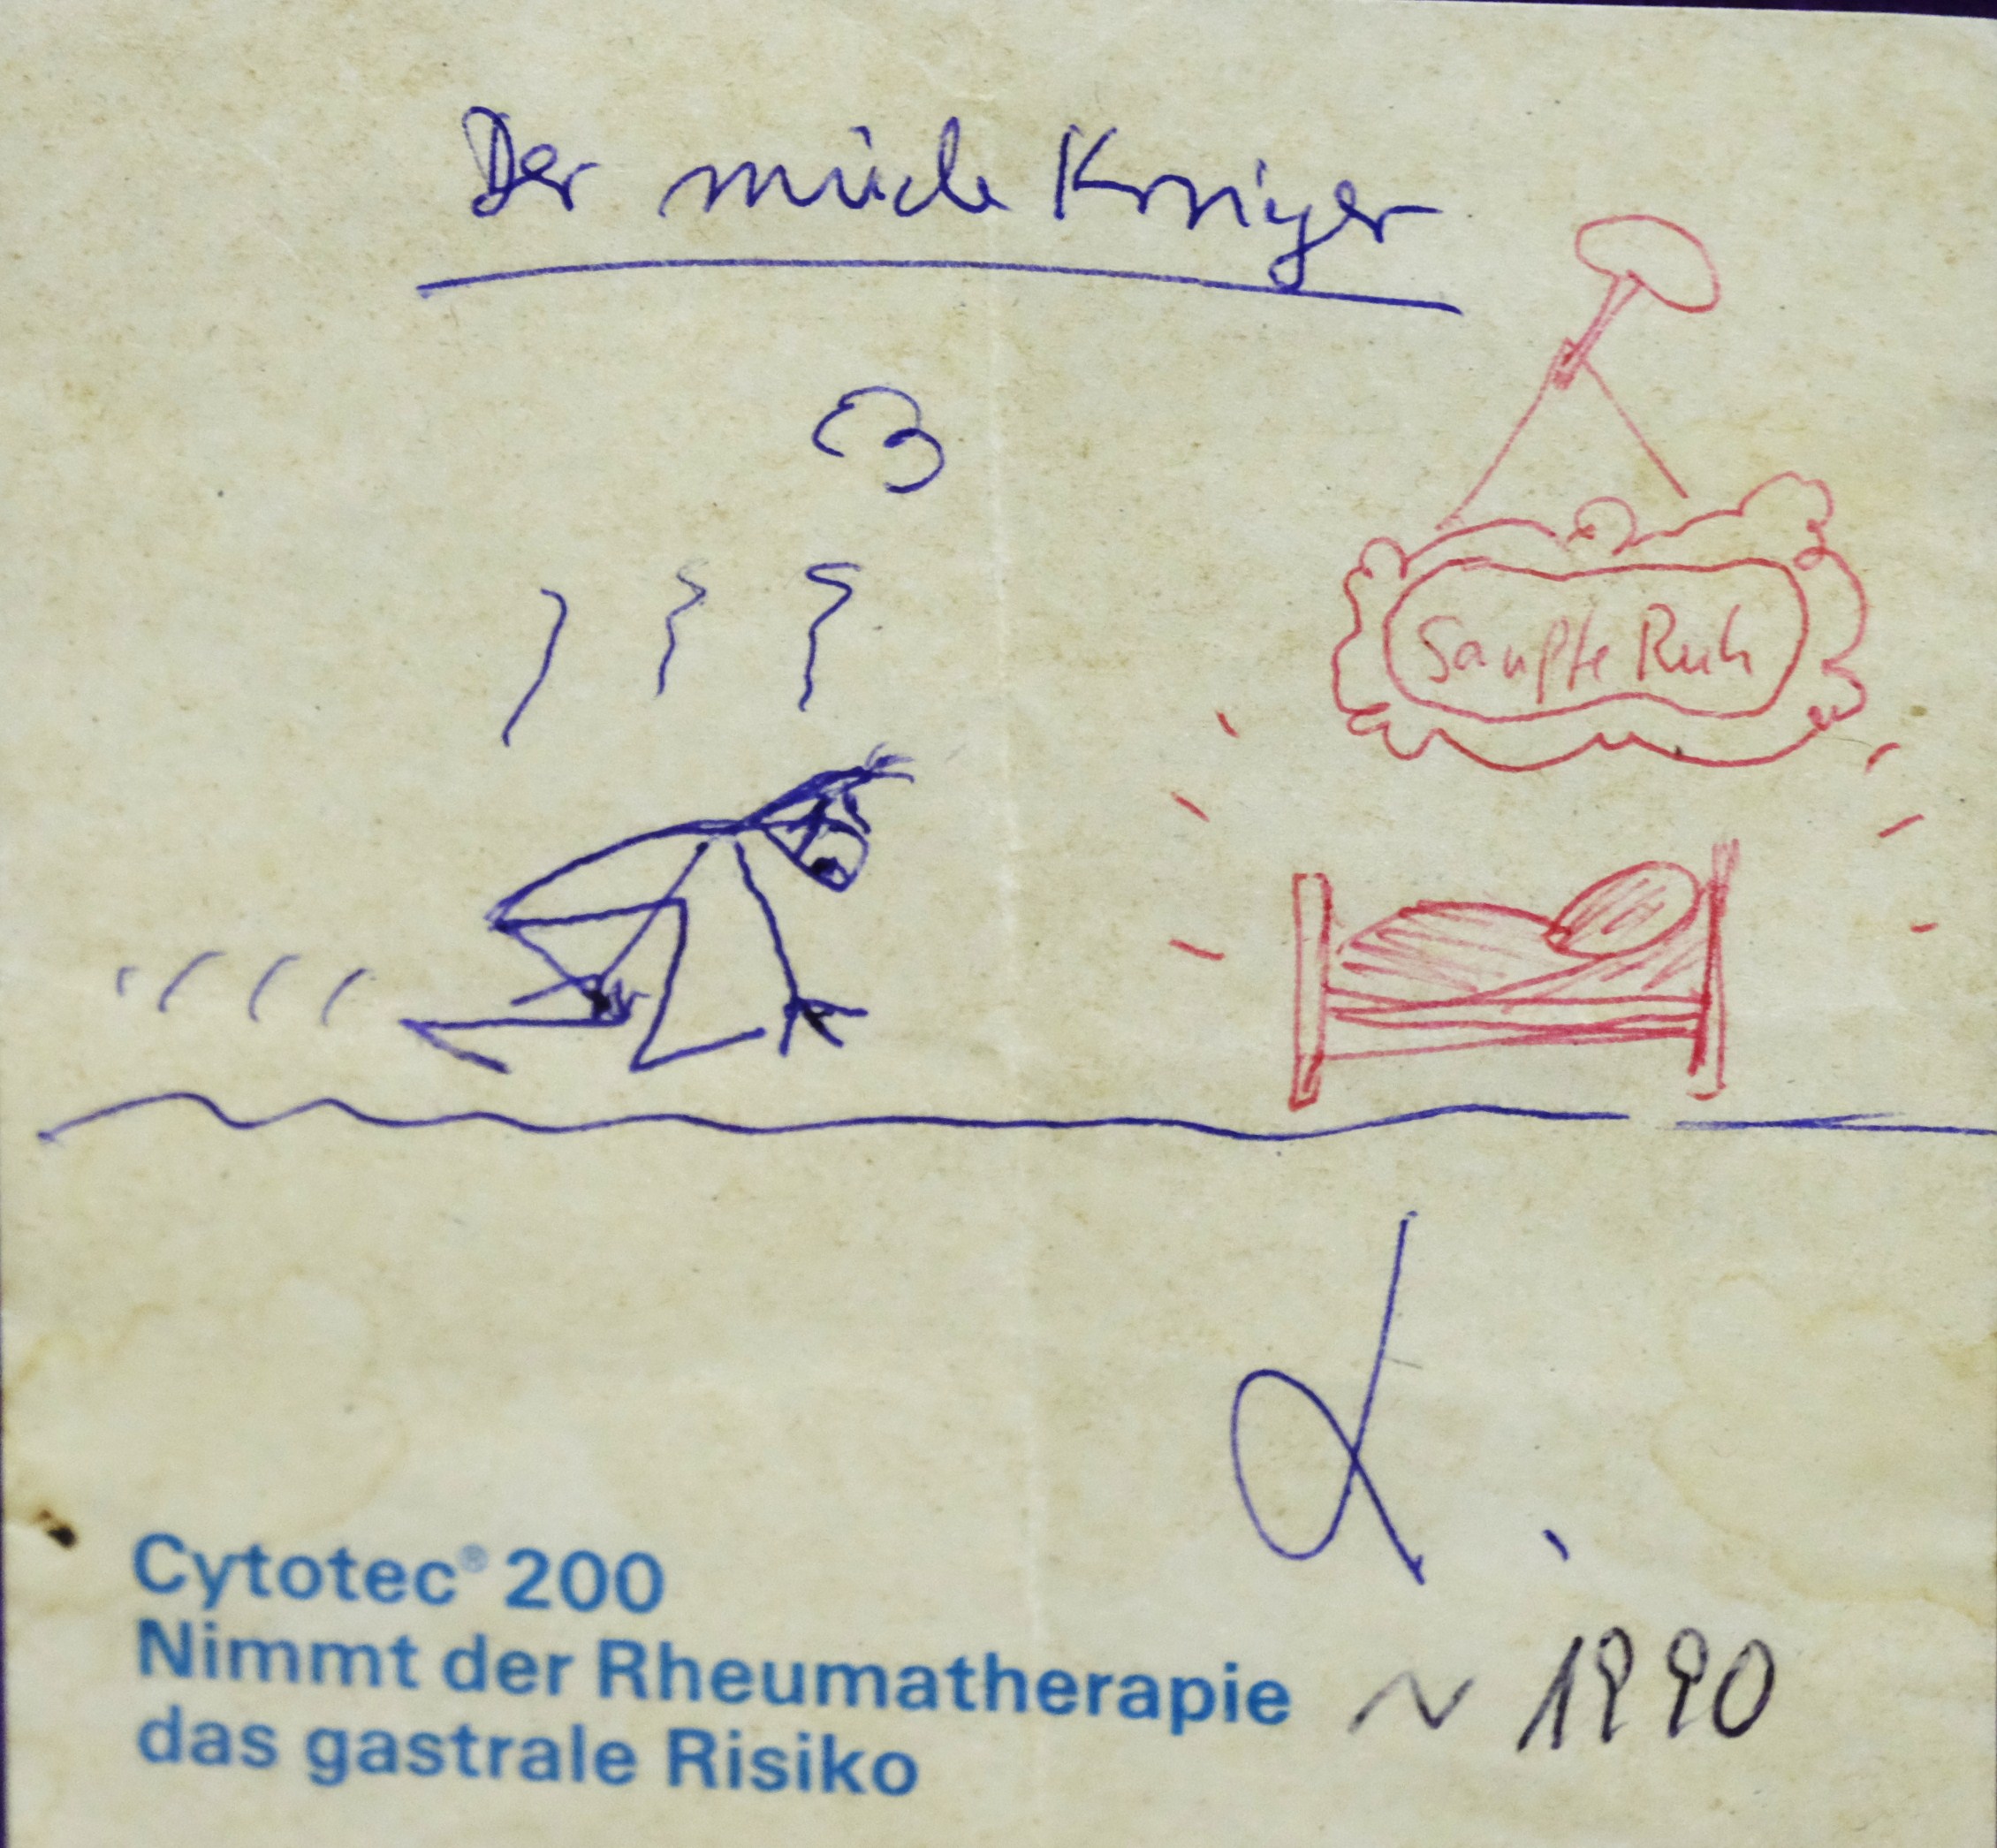 Der müde
Sanfte Ruh
L.
Cytotec® 200
Nimmt der Rheumatherapie
das gastrale Risiko
~ 1990